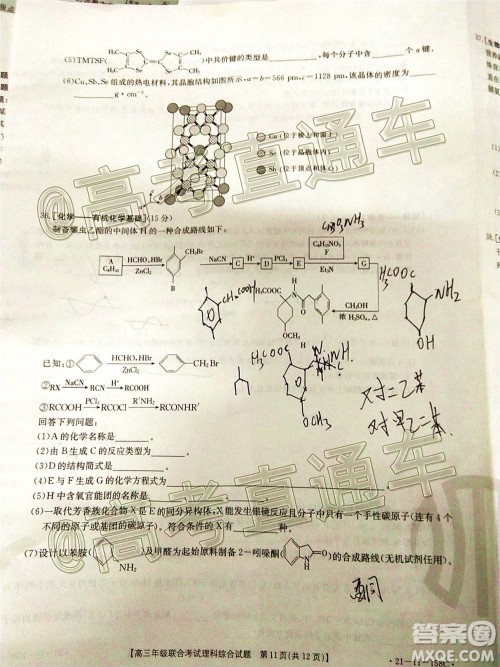 (5)TMTSF( H₃C Se Se CH₃ H₃C Se Se CH₃ )中共价键的类型是________，每个分子中含____个σ键。
(6)Cu、Sb、Se组成的热电材料，其晶胞结构如图所示，a=b=566 pm，c=1128 pm，该晶体的密度为____
____g·cm⁻³。
Cu(位于棱上和面上)
Se(位于晶胞体内)
Sb(位于顶点和体心)
36.[化学——有机化学基础](15分)
制备螺虫乙酯的中间体H的一种合成路线如下：
A C₈H₁₀ HCHO,HBr ZnCl₂ CH₂Br B NaCN C H⁺ D PCl₃ E Et₃N F G
CH₃OH 浓H₂SO₄,△ H₃COOC OCH₃ H
CH₂COOH
H₃COOC NH₂ OH
H₃COOC OCH₃
已知：① HCHO,HBr ZnCl₂ CH₂Br
②RX NaCN RCN H⁺ RCOOH
③RCOOH PCl₃ RCOCl R'NH₂ RCONHR'
对二乙苯
回答下列问题：
(1)A的化学名称是______。
(2)由B生成C的反应类型为______。
(3)D的结构简式是______。
(4)E与F生成G的化学方程式为________。
(5)H中含氧官能团的名称是________。
(6)一取代芳香族化合物X是E的同分异构体，X能发生银镜反应且分子中只有一个手性碳原子(连有4个
不同的原子或基团的碳原子)。符合条件的X有____种。
(7)设计以苯胺( NH₂ )及甲醛为起始原料制备2-吲哚酮( N H O )的合成路线(无机试剂任用)。
酮
【高三年级联合考试理科综合试题 第11页(共12页)】
@高考直通车
@高考直通车
答案圈
MXQE.COM